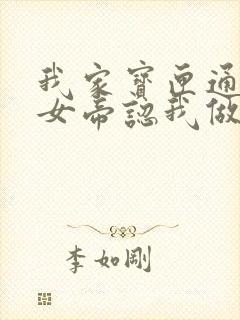 我家寶匣通
女帝認我做
李如剛